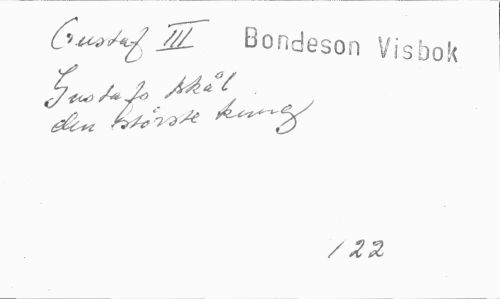 Gustaf III Bondeson Visbok
Gustafs skål
den störste kung
122